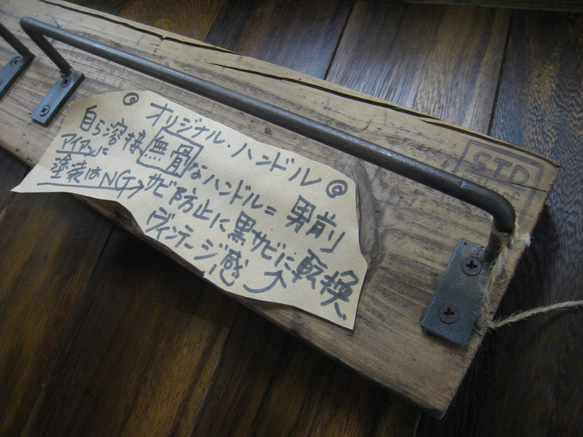 オリジナル・ハンドル
自ら溶接無骨なハンドル=男前
アイアンに
塗装はNG→サビ防止に黒サビに転換、
ヴィンテージ感へ
STD